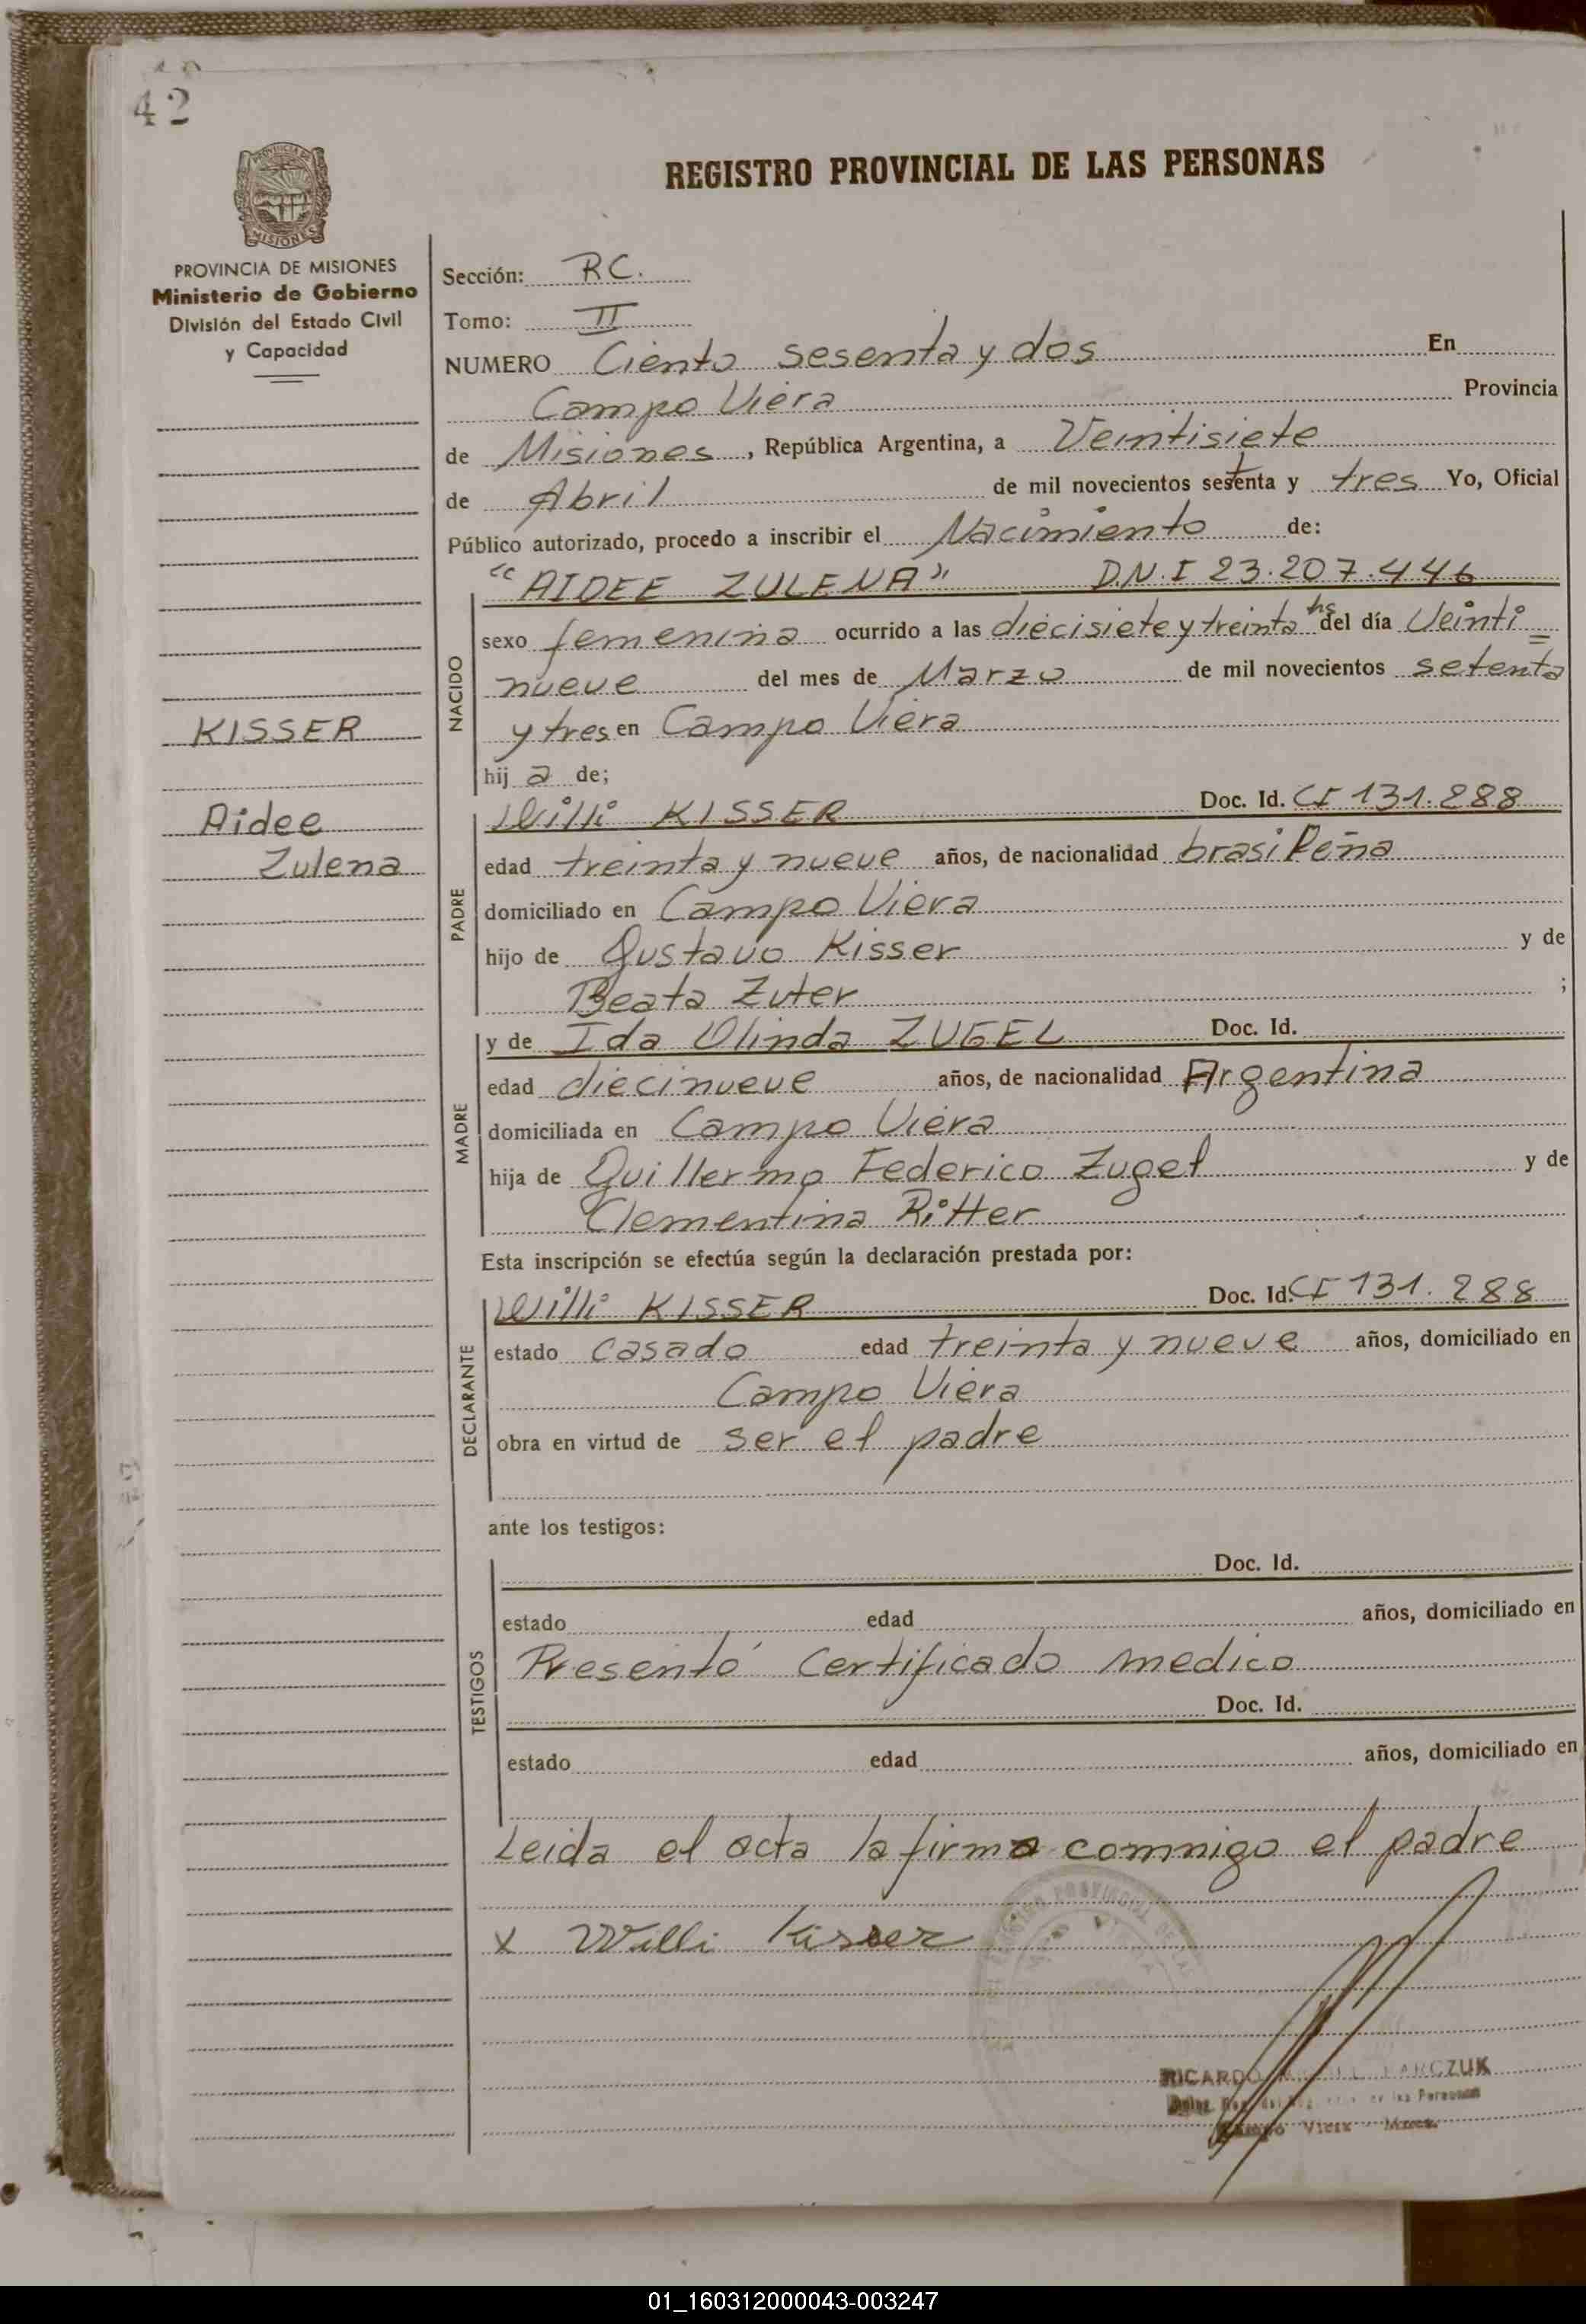 42
REGISTRO PROVINCIAL DE LAS PERSONAS
MISIONES
PROVINCIA DE MISIONES
Ministerio de Gobierno
División del Estado Civil
y Capacidad
KISSER
Aidee
Zulena
Sección: RC.
Tomo: II
NUMERO Ciento sesenta y dos En
Campo Viera Provincia
de Misiones, República Argentina, a Veintisiete
de Abril de mil novecientos setenta y tres Yo, Oficial
Público autorizado, procedo a inscribir el Nacimiento de:
"AIDEE ZULENA" D.N.I 23.207.446
NACIDO
sexo femenina ocurrido a las diecisiete y treinta hs del día Veinti=
nueve del mes de Marzo de mil novecientos setenta
y tres en Campo Viera
hija de;
PADRE
Willi KISSER Doc. Id. CI 131.288
edad treinta y nueve años, de nacionalidad brasileña
domiciliado en Campo Viera
hijo de Gustavo Kisser y de
Beata Zuter ;
MADRE
y de Ida Olinda ZUGEL Doc. Id.
edad diecinueve años, de nacionalidad Argentina
domiciliada en Campo Viera
hija de Guillermo Federico Zugel y de
Clementina Ritter
Esta inscripción se efectúa según la declaración prestada por:
DECLARANTE
Willi KISSER Doc. Id. CI 131.288
estado casado edad treinta y nueve años, domiciliado en
Campo Viera
obra en virtud de ser el padre
ante los testigos:
TESTIGOS
Doc. Id.
estado edad años, domiciliado en
Presentó certificado medico
Doc. Id.
estado edad años, domiciliado en
Leida el acta la firma commigo el padre
x Willi Kisser
RICARDO
Campo Viera
01_160312000043-003247